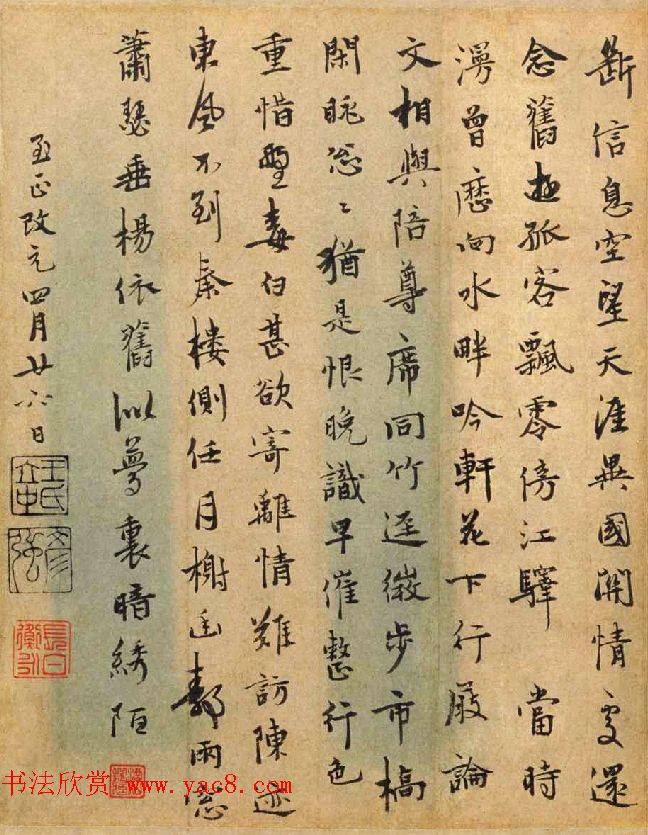 斷信息空望天涯異國關情處還
念舊遊孤客飄零傍江驛 當時
漫曾歷向水畔吟軒花下行廚論
文相與陪尊席同竹逕微步市橋
閑眺怱〻猶是恨晚識早催整行色
重惜白甚欲寄離情難訪陳迹
東風不到秦樓側任月榭雨窓
蕭瑟垂楊依舊似夢裏暗綉陌
至正改元四月廿六日
王氏立中
彥強
书法欣赏 www.yac8.com